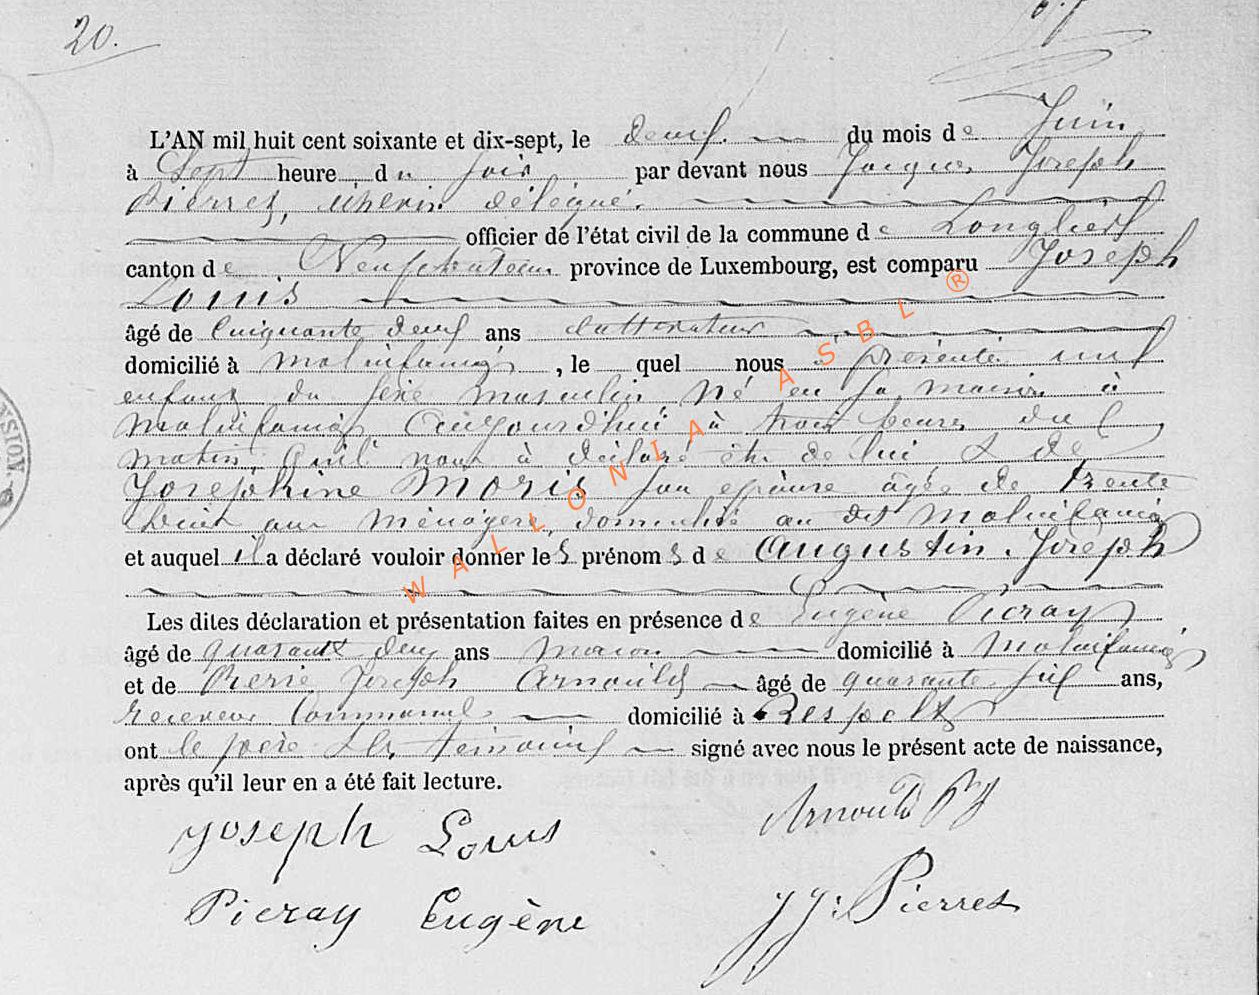 20.
L'AN mil huit cent soixante et dix-sept, le deux du mois de Juin
à Sept heure du soir par devant nous Jacques Joseph
Pierret, échevin délégué.
officier de l'état civil de la commune de Longlier
canton de Neufchateau province de Luxembourg, est comparu Joseph
Louis
âgé de Cinquante deux ans cultivateur
domicilié à molinfaing, le quel nous a présenté un
enfant du sexe masculin né en sa maison à
molinfaing aujourd'hui à trois heures du
matin qu'il nous à déclaré être de lui & de
Josephine Moris son épouse âgée de trente
huit ans ménagère, domiciliée au dit molinfaing
et auquel il a déclaré vouloir donner les prénoms de Augustin. Joseph
Les dites déclaration et présentation faites en présence de Eugène Picray
âgé de quarante deux ans maçon domicilié à Molinfaing
et de Pierre Joseph Arnould âgé de quarante six ans,
receveur Communal domicilié à Respelt
ont le père & les témoins signé avec nous le présent acte de naissance,
après qu'il leur en a été fait lecture.
Joseph Louis Arnould PJ
Picray Eugène JJ: Pierret
WALLONIA ASBL ®
SION.